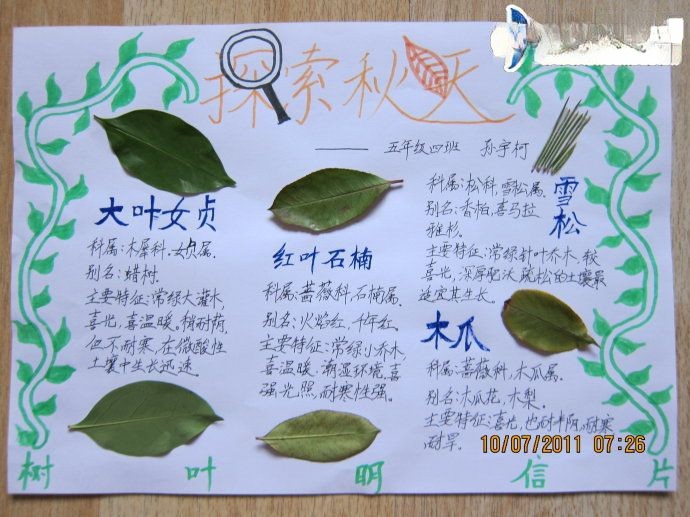 探索秋天
五年级四班 孙宇柯
大叶女贞
科属:木犀科.女贞属.
别名:蜡树.
主要特征:常绿大灌木,
喜光,喜温暖。稍耐荫,
但不耐寒.在微酸性
土壤中生长迅速。
红叶石楠
科属:蔷薇科.石楠属.
别名:火焰红,千年红.
主要特征:常绿小乔木,
喜温暖、潮湿环境,喜
强光照,耐寒性强。
雪松
科属:松科,雪松属.
别名:香柏,喜马拉
雅杉.
主要特征:常绿针叶乔木,较
喜光,深厚肥沃、疏松的土壤最
适宜其生长。
木瓜
科属:蔷薇科,木瓜属.
别名:木瓜花,木梨.
主要特征:喜光,也耐半阴,耐寒
耐旱。
10/07/2011 07:26
树叶明信片